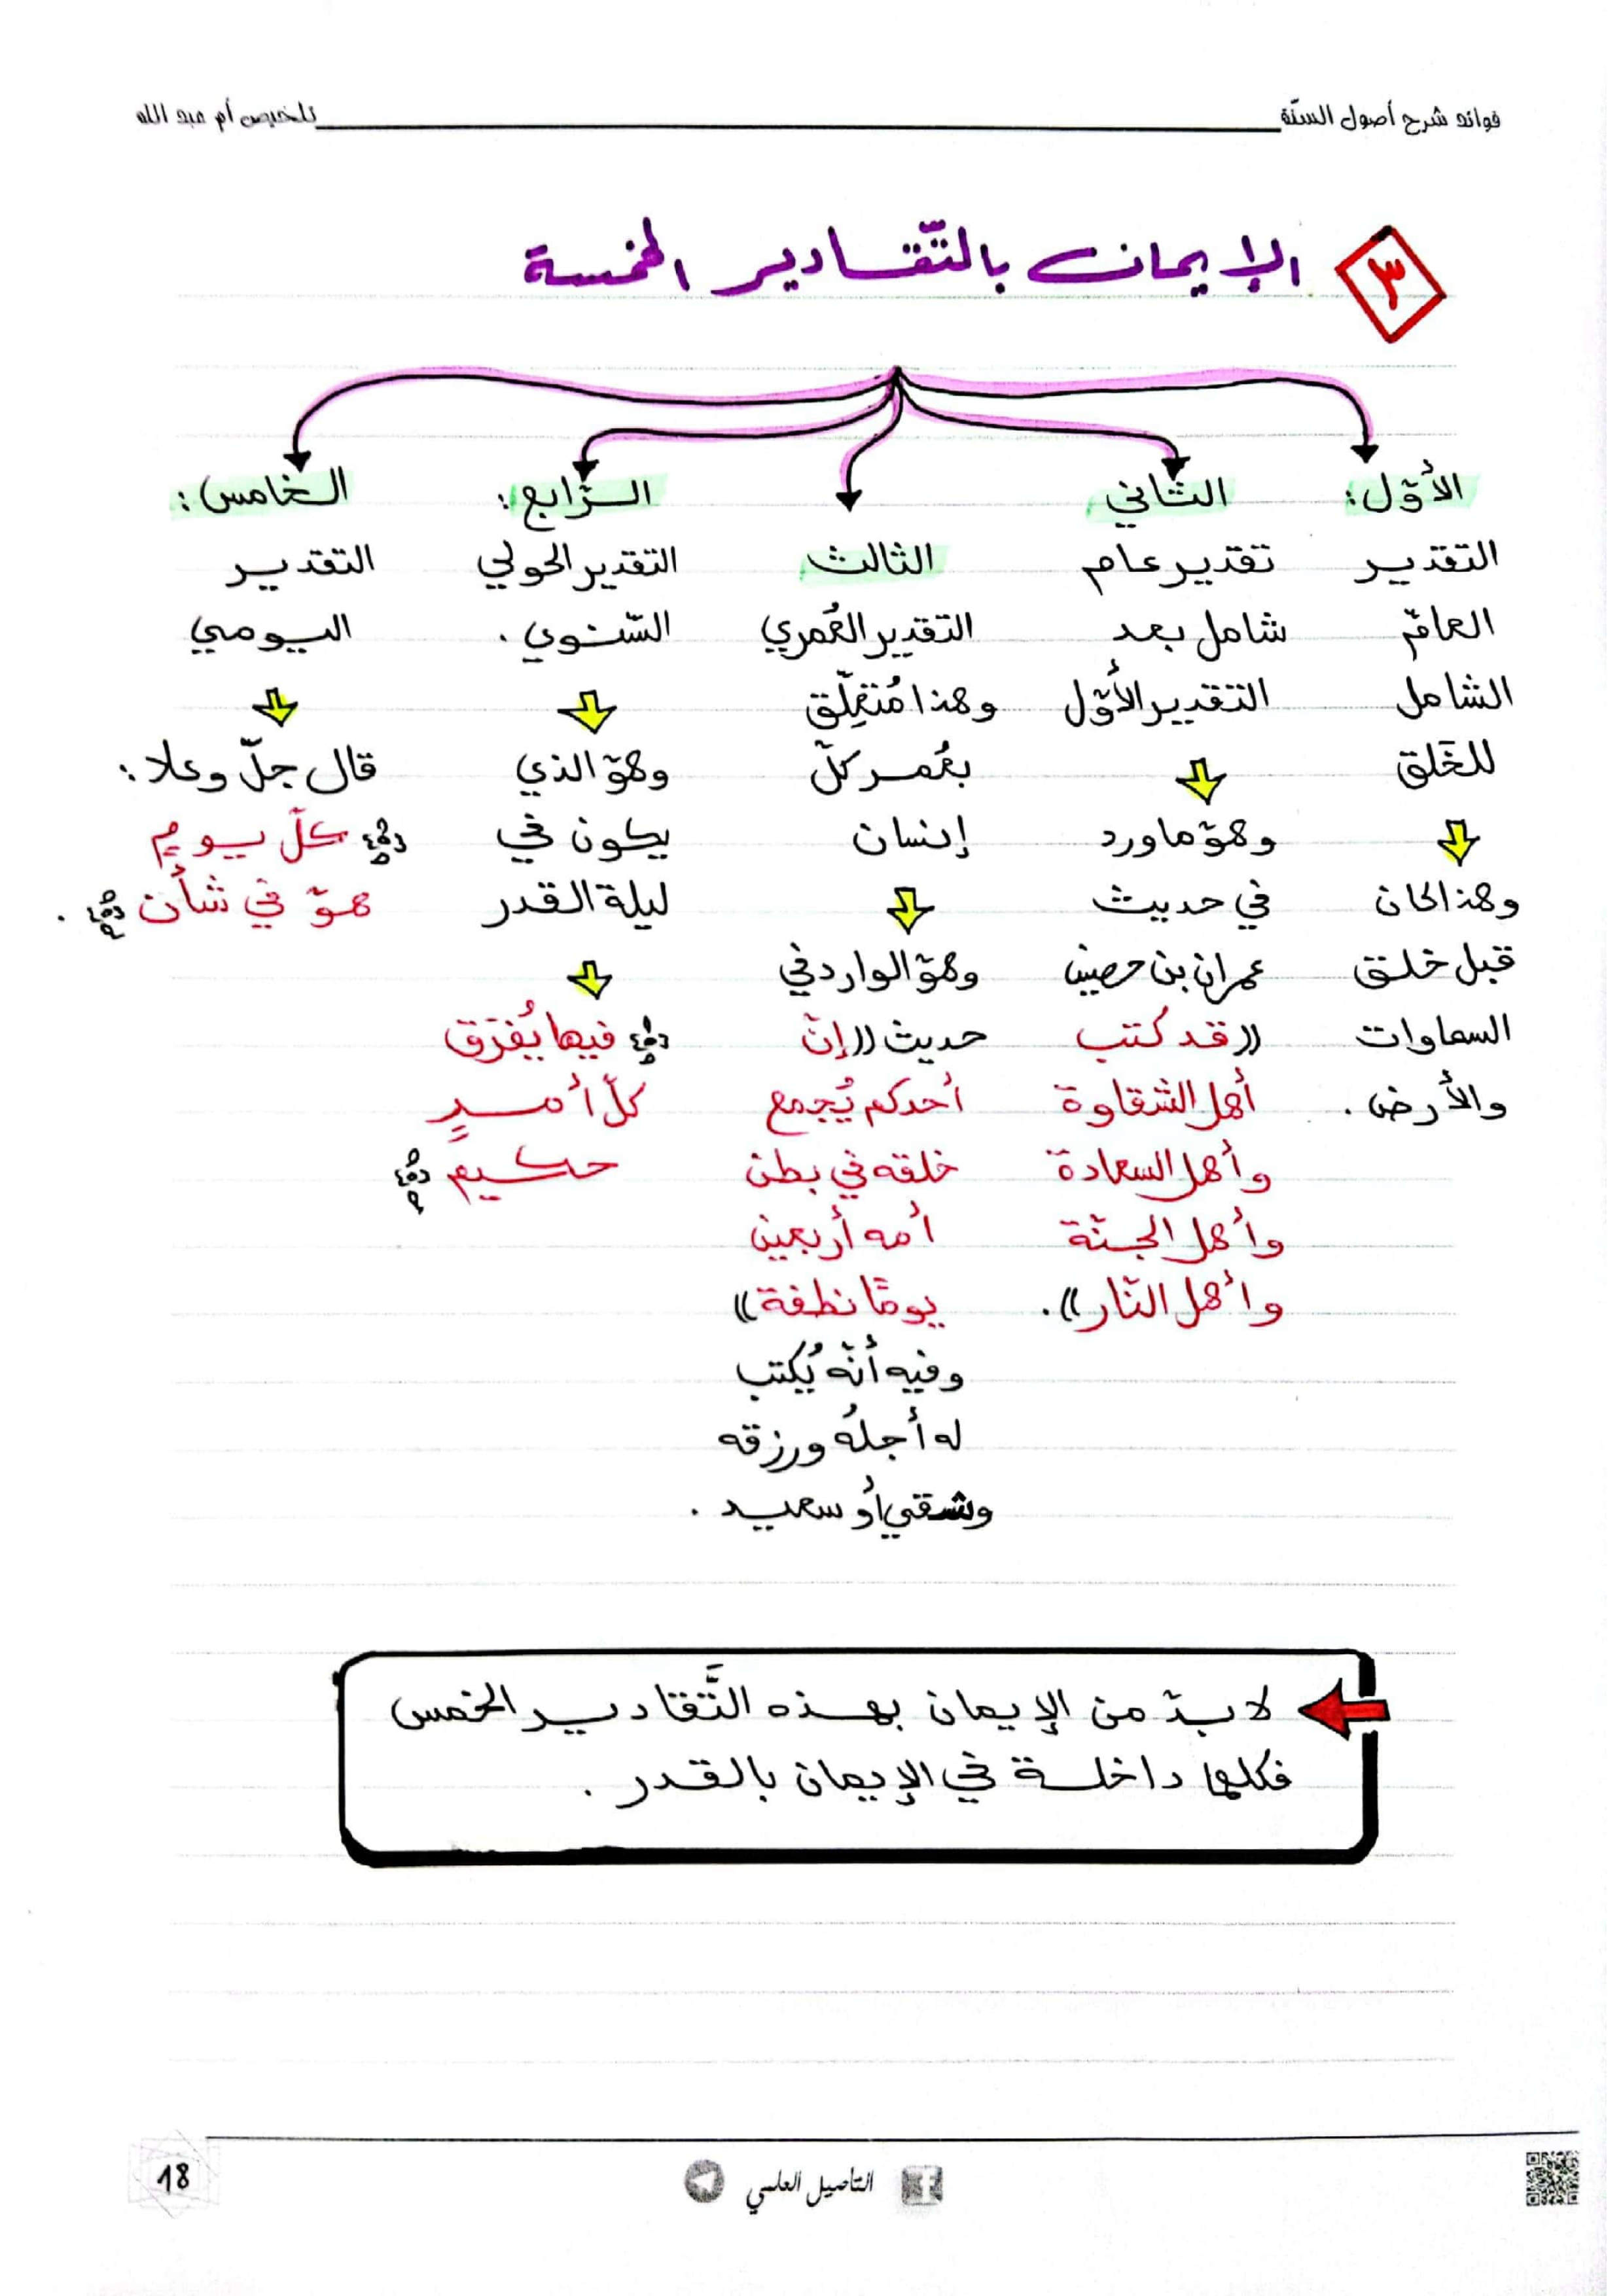 فوائد شرح أصول السنّة
تلخيص أم عبد الله
٣
الإيمان بالتّقادير الخمسة
الأوّل:
التقدير
العامّ
الشامل
للخَلق
وهذا كان
قبل خلق
السماوات
والأرض.
الثاني
تقدير عام
شامل بعد
التقدير الأوّل
وهو ما ورد
في حديث
عمران بن حصين
((قد كتب
أهل الشقاوة
وأهل السعادة
وأهل الجنّة
وأهل النّار)).
الثالث
التقدير العُمري
وهذا مُتعلِّق
بعُمر كلّ
إنسان
وهو الوارد في
حديث ((إنّ
أحدكم يُجمع
خلقه في بطن
أمه أربعين
يومًا نطفة))
وفيه أنّه يُكتب
له أجلهُ ورزقه
وشقي أو سعيد.
الرّابع:
التقدير الحولي
السّنوي.
وهو الذي
يكون في
ليلة القدر
﴿فيها يُفرَق
كلّ أمرٍ
حكيم﴾
الخامس:
التقدير
اليومي
قال جلّ وعلا:
﴿كلّ يومٍ
هو في شأن﴾.
لا بدّ من الإيمان بهذه التَّقادير الخمس
فكلها داخلة في الإيمان بالقدر.
18
التأصيل العلمي